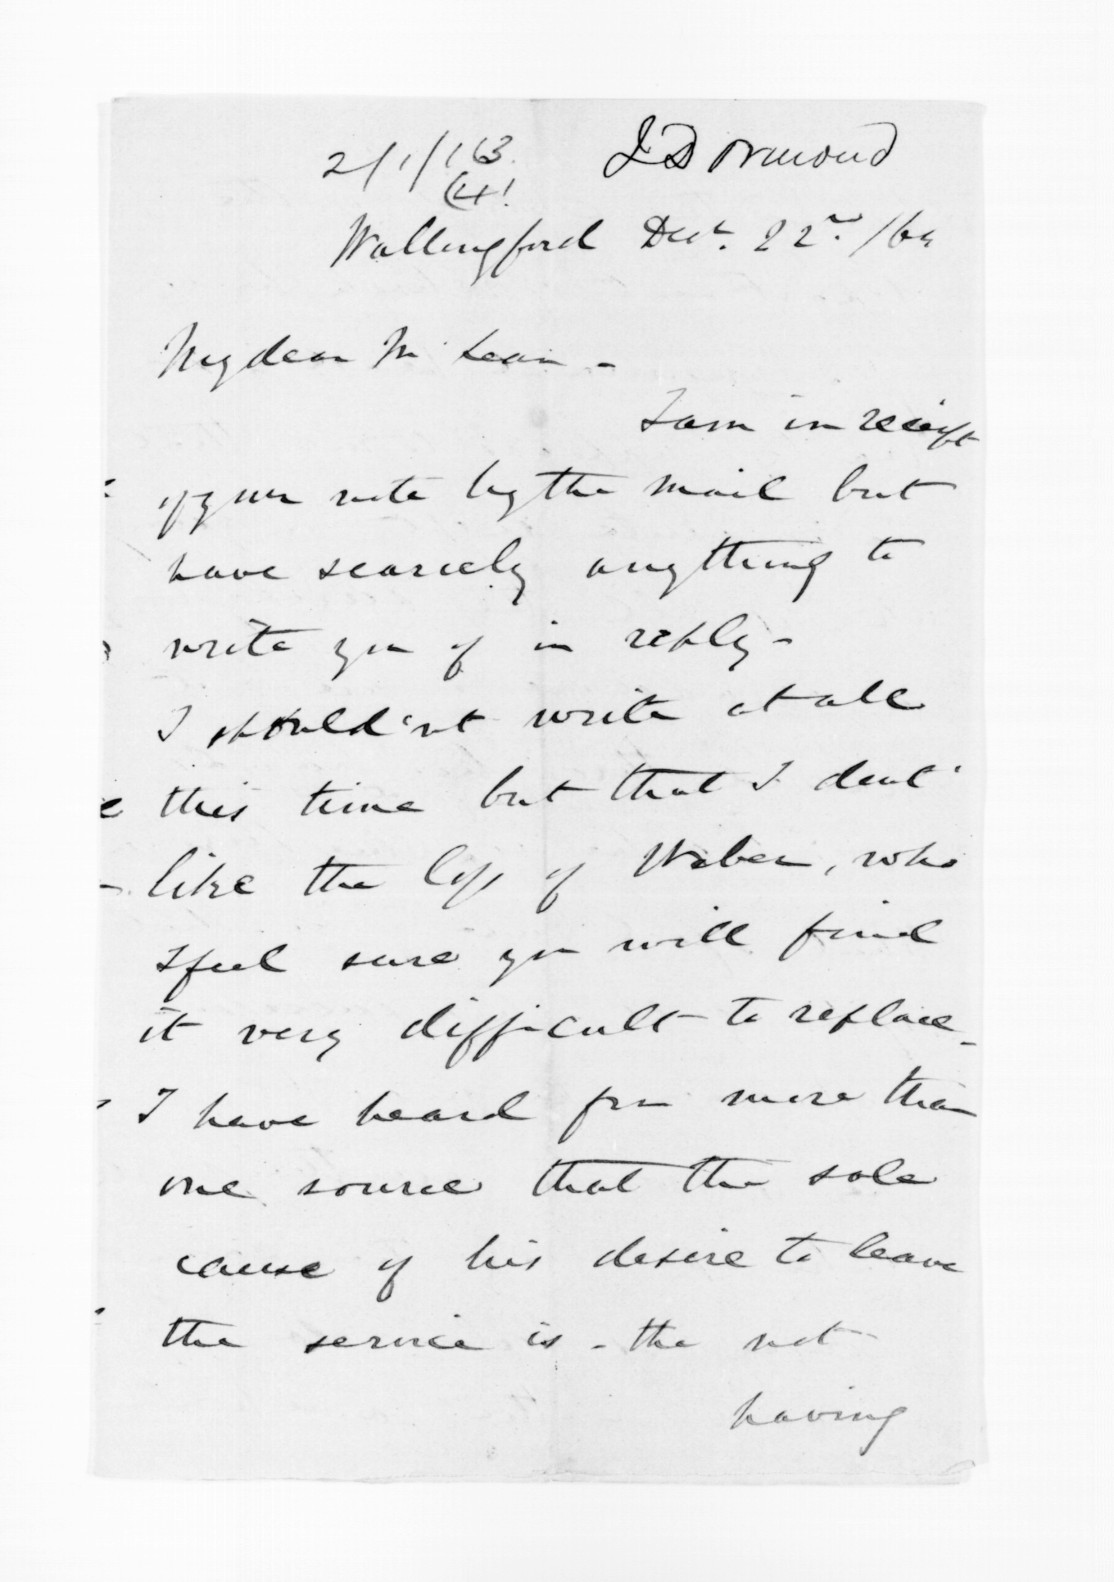 2/1/163
(4)
J D Ormond
Wallingford Decr. 22nd. /64
My dear McLean -
I am in receipt
of your note by the mail but
have scarcely anything to
write you of in reply -
I shouldn't write at all
this time but that I don't
like the loss of Weber, who
I feel sure you will find
it very difficult to replace -
I have heard from more than
one source that the sole
cause of his desire to leave
the service is - the not
having